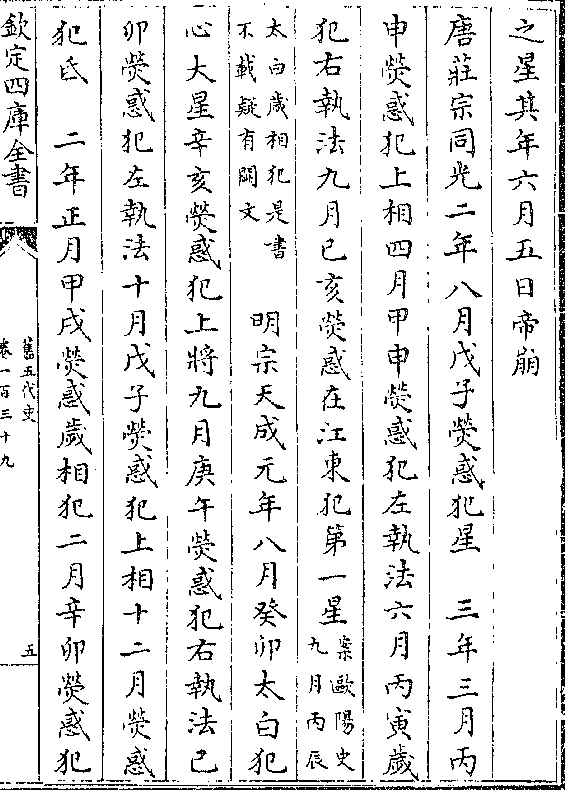 之星其年六月五日帝崩
唐莊宗同光二年八月戊子熒惑犯星　三年三月丙
申熒惑犯上相四月甲申熒惑犯左執法六月丙寅歲
犯右執法九月已亥熒惑在江東犯第一星案歐陽史九月丙辰
太白歲相犯是書不載疑有闕文　明宗天成元年八月癸卯太白犯
心大星辛亥熒惑犯上將九月庚午熒惑犯右執法已
卯熒惑犯左執法十月戊子熒惑犯上相十二月熒惑
犯氐　二年正月甲戌熒惑歲相犯二月辛卯熒惑犯
欽定四庫全書
舊五代史
卷一百三十九
五